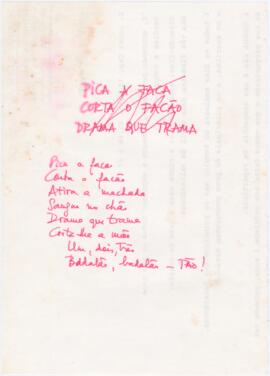 PICA A FACA
CORTA O FACÃO
DRAMA QUE TRAMA
Pica a faca
Corta o facão
Atira a machada
Sangue no chão
Drama que trama
Corte-lhe a mão
Um, dois, três
Badalão, badalão – TÃO!